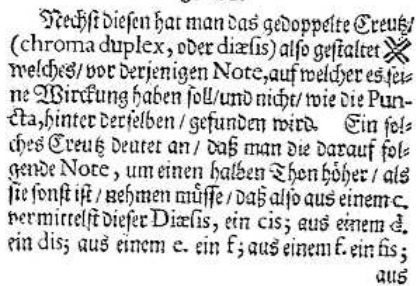 Nechst diesen hat man das gedoppelte Creutz/
(chroma duplex, oder diæsis) also gestaltet
welches/ vor derjenigen Note, auf welcher es sei-
ne Wirckung haben soll/ und nicht/ wie die Pun-
cta, hinter derselben / gefunden wird. Ein sol-
ches Creutz deutet an / daß man die darauf fol-
gende Note, um einen halben Thon höher / als
sie sonst ist / nehmen müsse / daß also aus einem c.
vermittelst dieser Diæsis, ein cis; aus einem d.
ein dis; aus einem e. ein f; aus einem f. ein fis;
aus